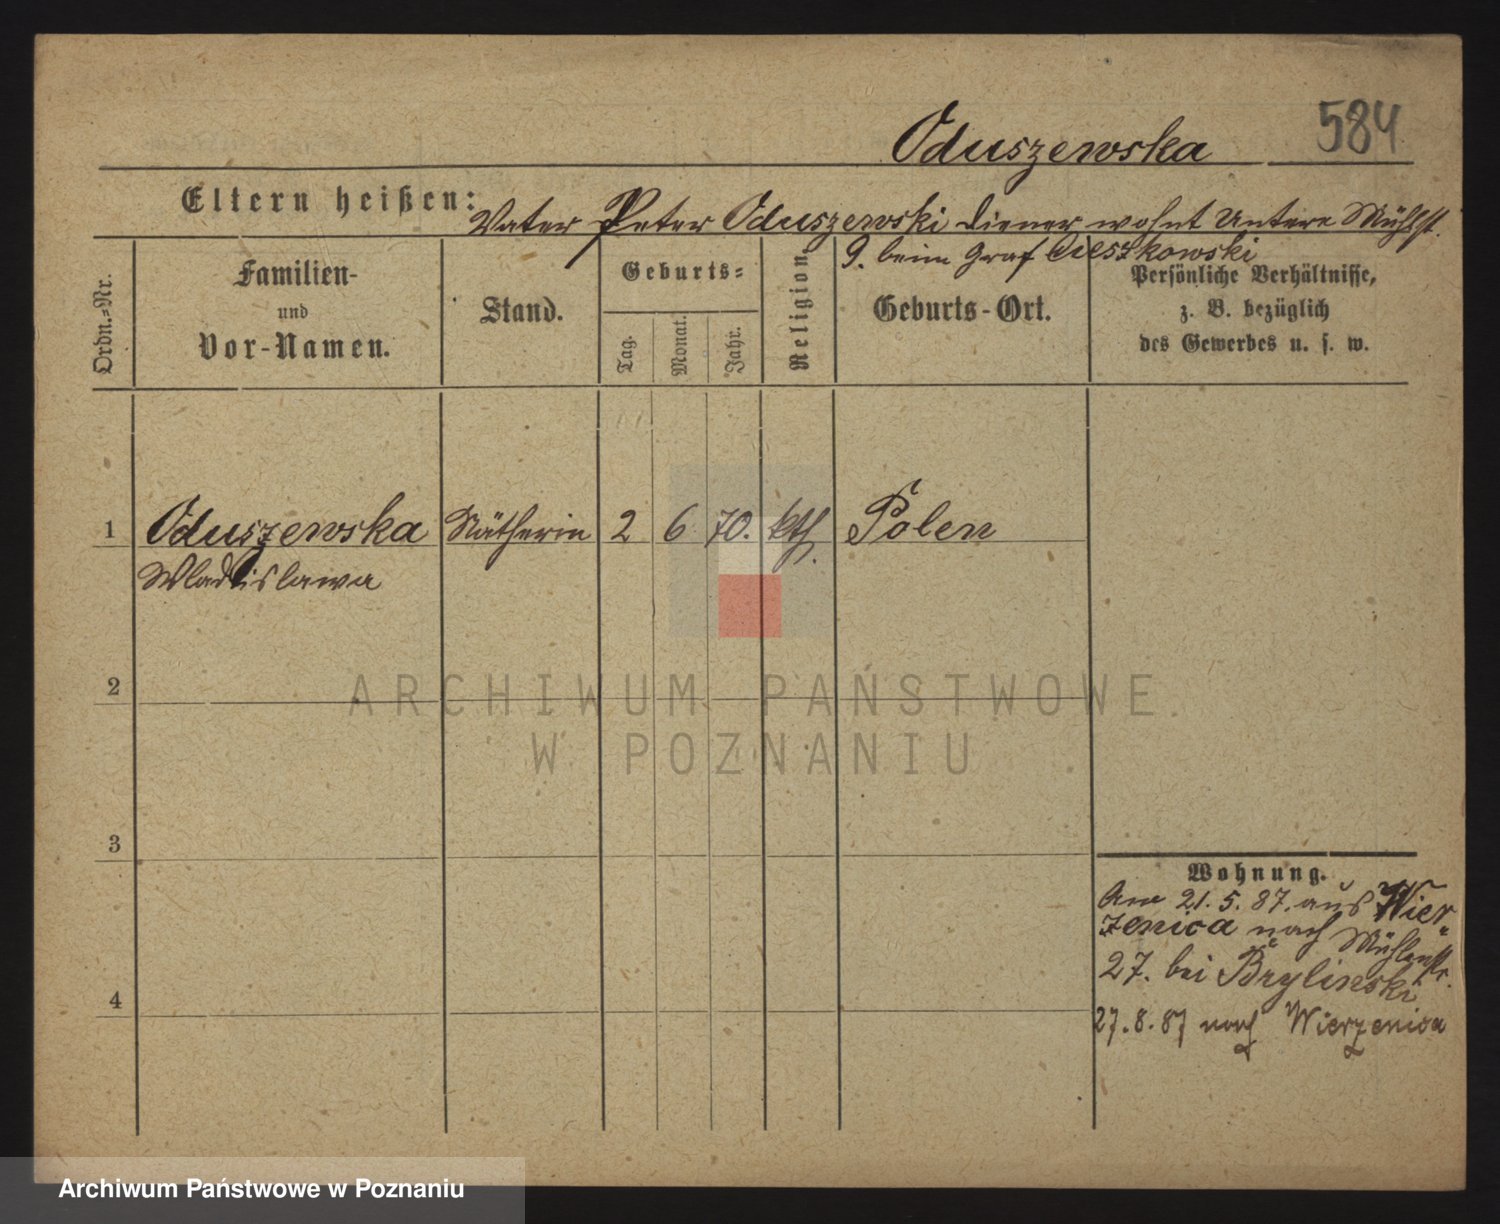 584
Oduszewska
Eltern heißen: Vater Peter Oduszewski Diener wohnt Untere Mühlst.
9. beim Graf Cieszkowski
Ordn.-Nr.
Familien-
und
Vor-Namen.
Stand.
Geburts-
Tag.
Monat.
Jahr.
Religion.
Geburts-Ort.
Persönliche Verhältnisse,
z. B. bezüglich
des Gewerbes u. s. w.
1 Oduszewska Nätherin 2 6 70. kth. Polen
Wladislawa
2
3
4
Wohnung.
Am 21.5.87. aus Wier-
zenica nach Mühlenstr.
27. bei Brylinski
27.8.87 nach Wierzenica
ARCHIWUM PAŃSTWOWE
W POZNANIU
Archiwum Państwowe w Poznaniu